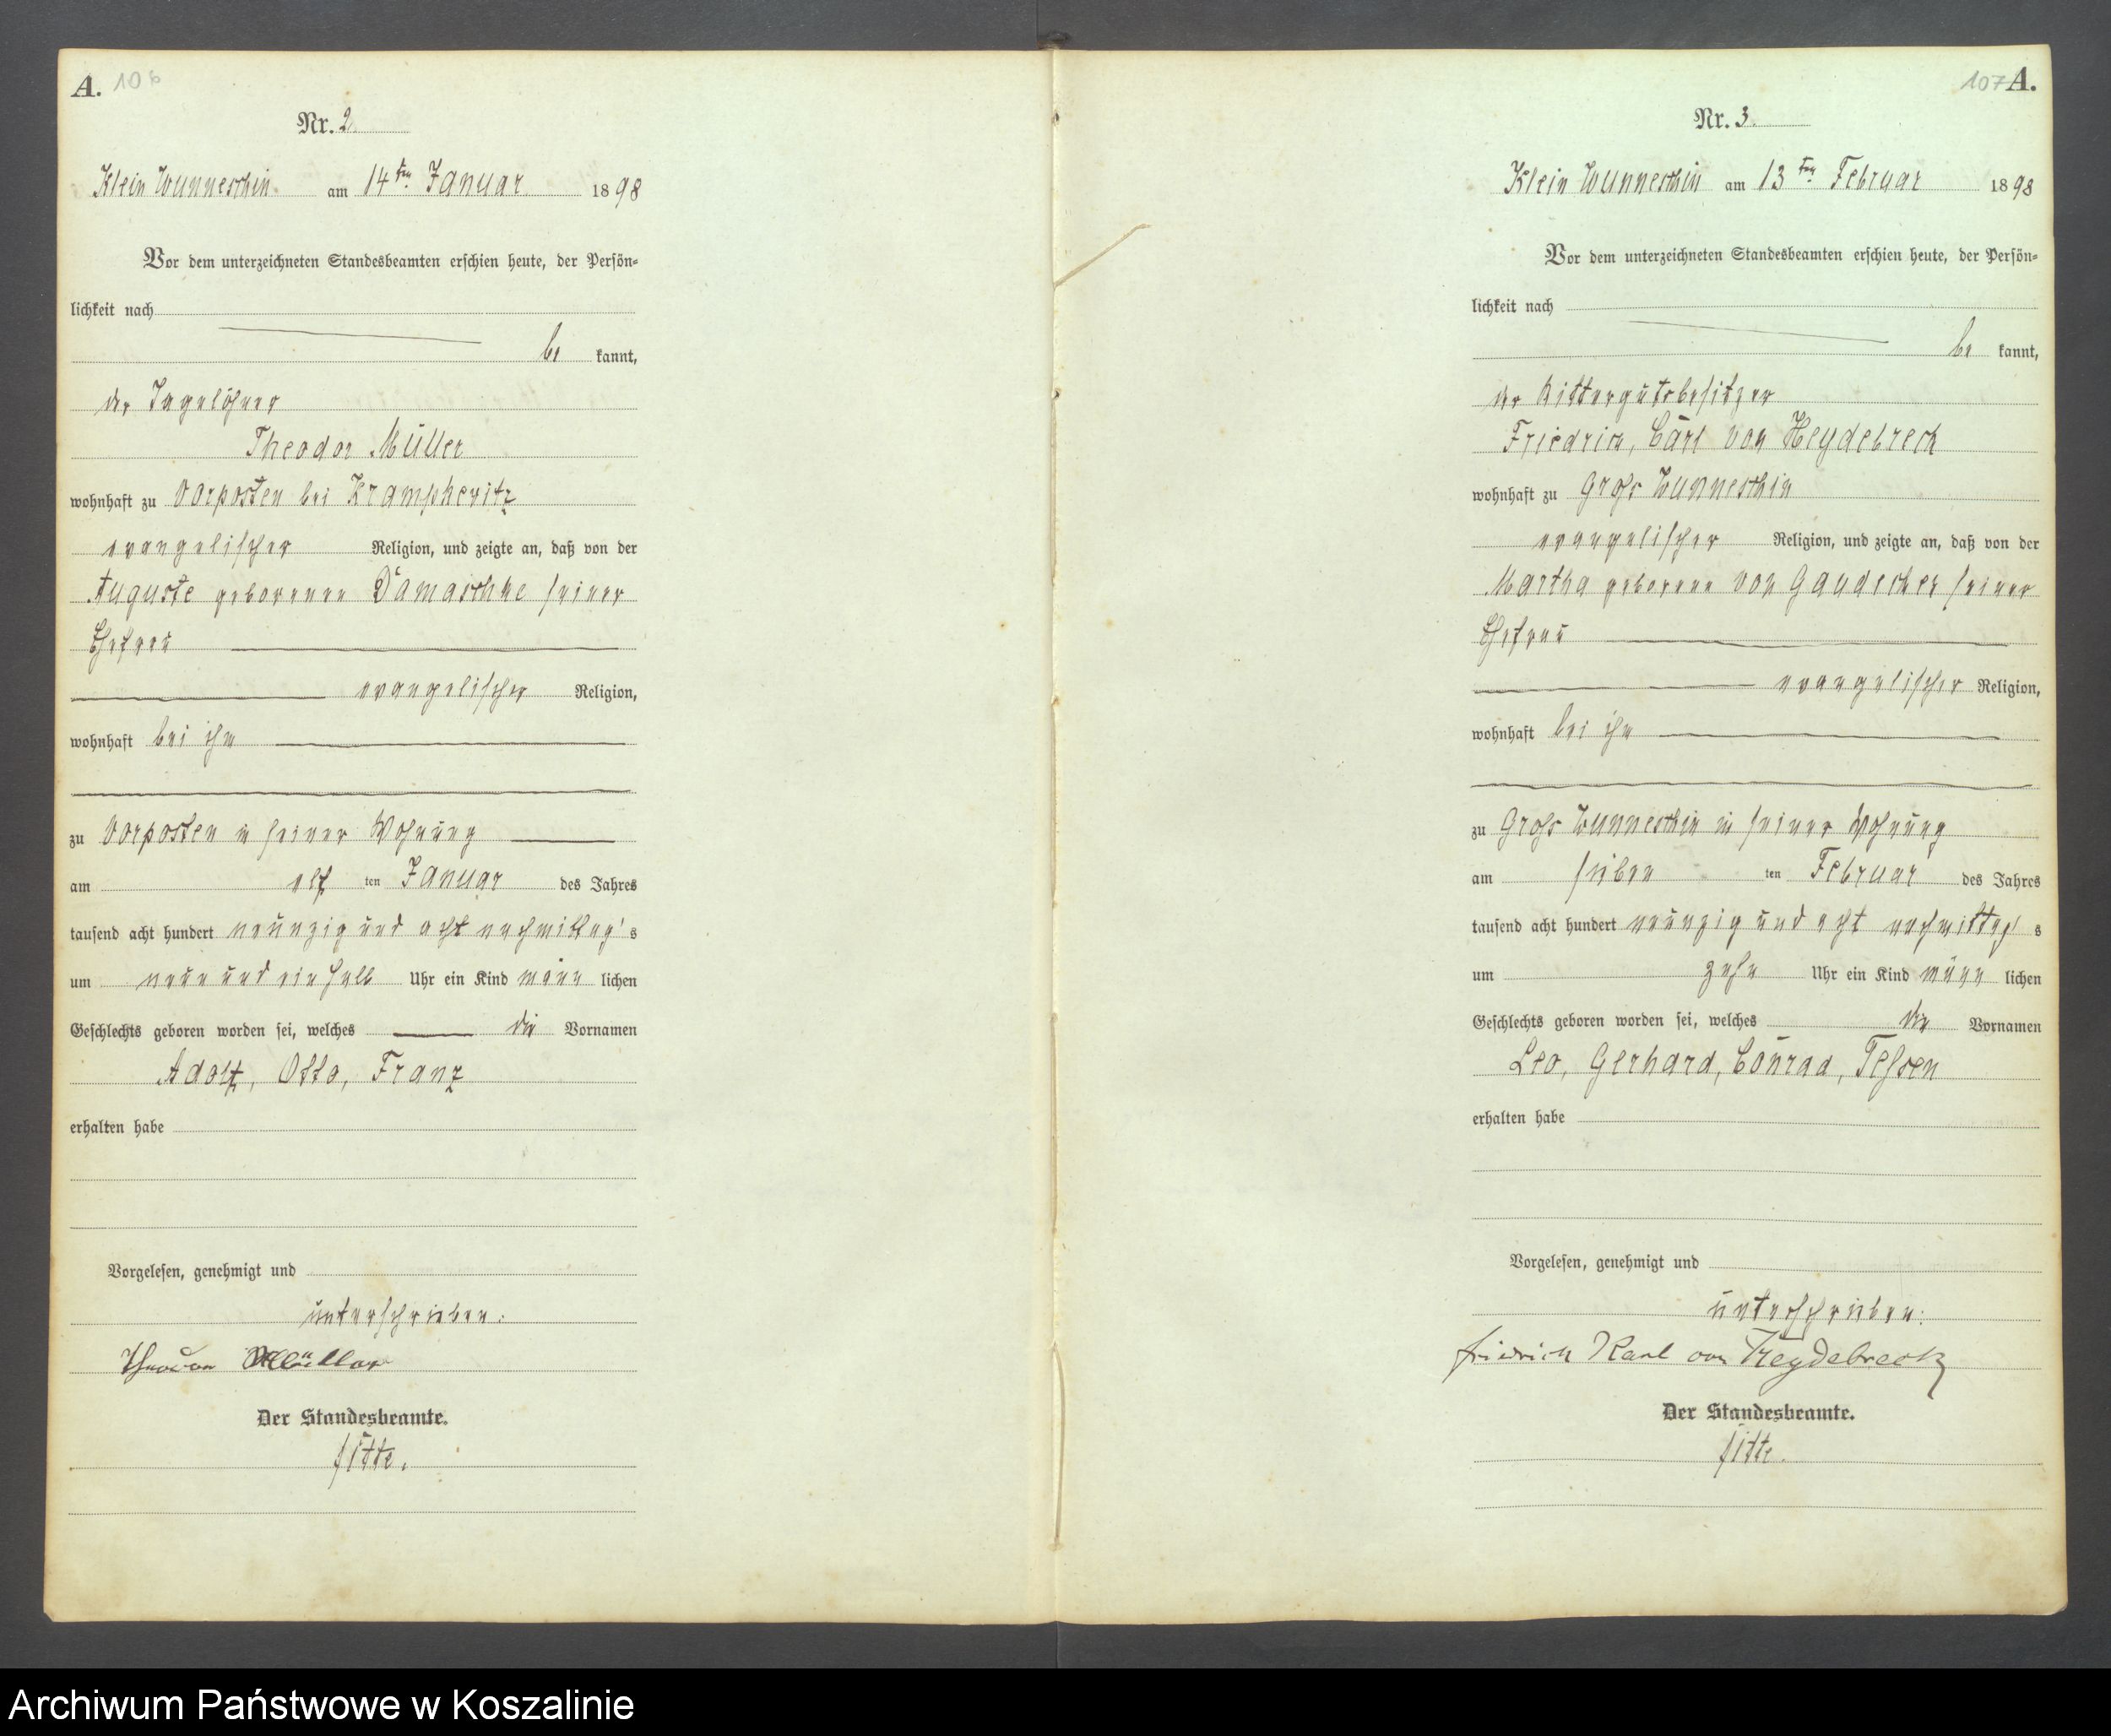 A. 106
Nr. 2.
Klein Wunneschin am 14ten Januar 1898
Vor dem unterzeichneten Standesbeamten erschien heute, der Persön-
lichkeit nach
be kannt,
der Tagelöhner
Theodor Müller
wohnhaft zu Vorposten bei Krampkewitz
evangelischer Religion, und zeigte an, daß von der
Auguste geborenen Damaschke seiner
Ehefrau
evangelischer Religion,
wohnhaft bei ihm
zu Vorposten in seiner Wohnung
am elf ten Januar des Jahres
tausend acht hundert neunzig und acht nachmittag's
um neun und ein halb Uhr ein Kind männ lichen
Geschlechts geboren worden sei, welches die Vornamen
Adolf, Otto, Franz
erhalten habe
Vorgelesen, genehmigt und
unterschrieben:
Theodor Müller
Der Standesbeamte.
Sitte.
107 A.
Nr. 3.
Klein Wunneschin am 13ten Februar 1898
Vor dem unterzeichneten Standesbeamten erschien heute, der Persön-
lichkeit nach
be kannt,
der Rittergutsbesitzer
Friedrich, Carl von Heydebreck
wohnhaft zu Groß Wunneschin
evangelischer Religion, und zeigte an, daß von der
Martha geborene von Gaudecker seiner
Ehefrau
evangelischer Religion,
wohnhaft bei ihm
zu Groß Wunneschin in seiner Wohnung
am sieben ten Februar des Jahres
tausend acht hundert neunzig und acht nachmittag s
um zehn Uhr ein Kind männ lichen
Geschlechts geboren worden sei, welches die Vornamen
Leo, Gerhard, Conrad, Teßen
erhalten habe
Vorgelesen, genehmigt und
unterschrieben:
Friedrich Karl von Heydebreck
Der Standesbeamte.
Sitte.
Archiwum Państwowe w Koszalinie